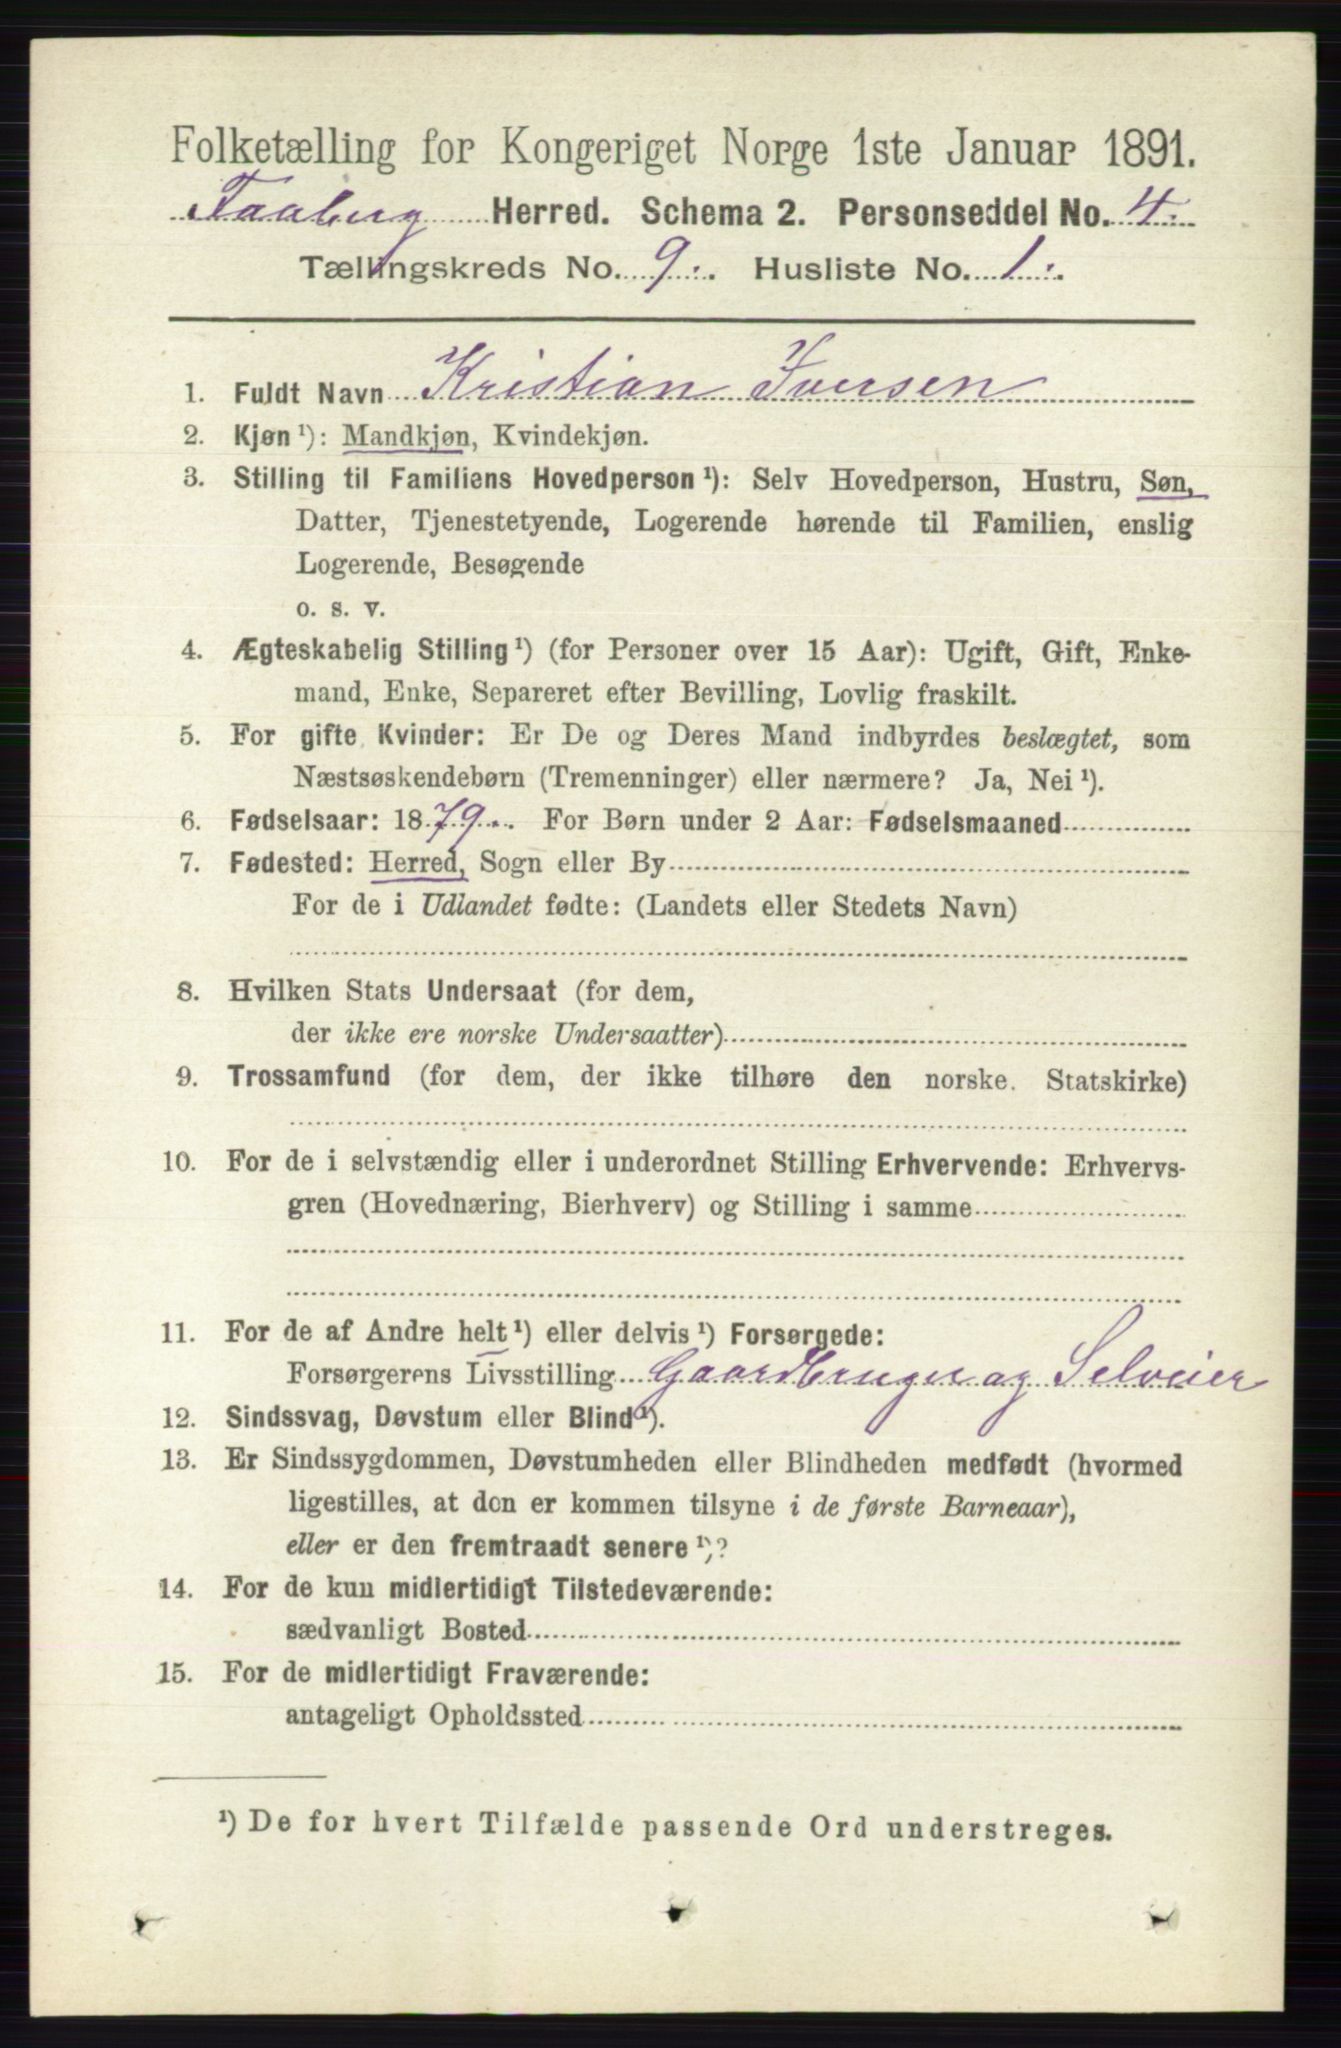 Folketælling for Kongeriget Norge 1ste Januar 1891.
Faaberg Herred. Schema 2. Personseddel No. 4.
Tællingskreds No. 9. Husliste No. 1.
1. Fuldt Navn Kristian Iversen
2. Kjøn ¹): Mandkjøn, Kvindekjøn.
3. Stilling til Familiens Hovedperson ¹): Selv Hovedperson, Hustru, Søn,
Datter, Tjenestetyende, Logerende hørende til Familien, enslig
Logerende, Besøgende
o. s. v.
4. Ægteskabelig Stilling ¹) (for Personer over 15 Aar): Ugift, Gift, Enke-
mand, Enke, Separeret efter Bevilling, Lovlig fraskilt.
5. For gifte Kvinder: Er De og Deres Mand indbyrdes beslægtet, som
Næstsøskendebørn (Tremenninger) eller nærmere? Ja, Nei ¹).
6. Fødselsaar: 1879. For Børn under 2 Aar: Fødselsmaaned
7. Fødested: Herred, Sogn eller By
For de i Udlandet fødte: (Landets eller Stedets Navn)
8. Hvilken Stats Undersaat (for dem,
der ikke ere norske Undersaatter)
9. Trossamfund (for dem, der ikke tilhøre den norske. Statskirke)
10. For de i selvstændig eller i underordnet Stilling Erhvervende: Erhvervs-
gren (Hovednæring, Bierhverv) og Stilling i samme
11. For de af Andre helt ¹) eller delvis ¹) Forsørgede:
Forsørgerens Livsstilling Gaardbruger og Selveier
12. Sindssvag, Døvstum eller Blind ¹).
13. Er Sindssygdommen, Døvstumheden eller Blindheden medfødt (hvormed
ligestilles, at den er kommen tilsyne i de første Barneaar),
eller er den fremtraadt senere ¹)?
14. For de kun midlertidigt Tilstedeværende:
sædvanligt Bosted
15. For de midlertidigt Fraværende:
antageligt Opholdssted
¹) De for hvert Tilfælde passende Ord understreges.